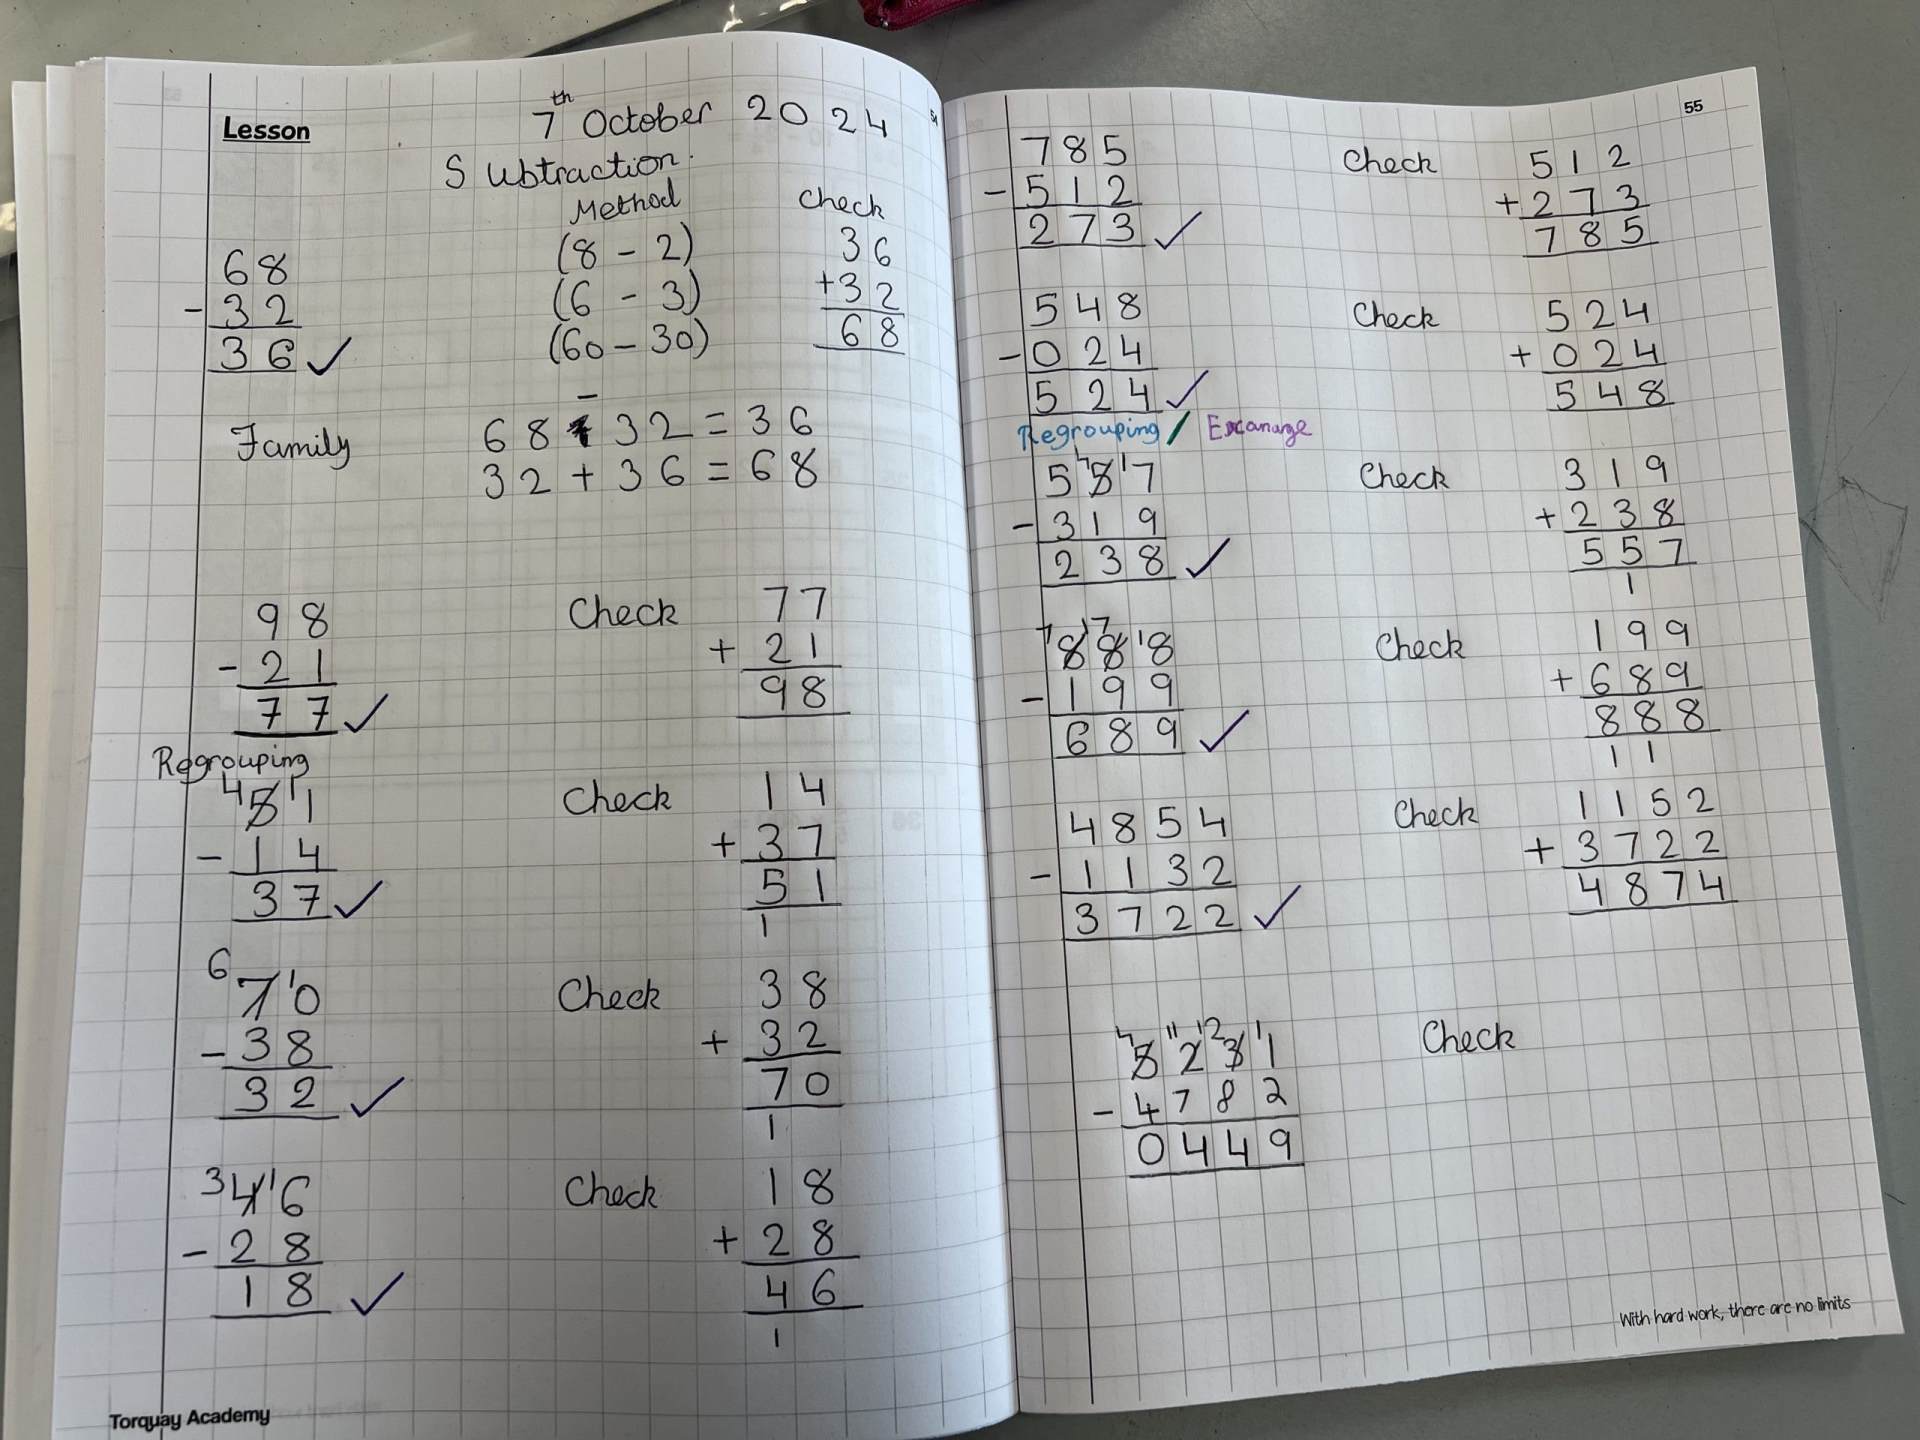 54
Lesson
7th October 2024
Subtraction.
Method
Check
68
- 32
36 ✓
(8 - 2)
(6 - 3)
(60 - 30)
36
+32
68
Family
68 - 32 = 36
32 + 36 = 68
98
- 21
77 ✓
Check
77
+ 21
98
Regrouping
4 1
51
- 14
37 ✓
Check
14
+ 37
51
1
6 1
70
- 38
32 ✓
Check
38
+ 32
70
1
3 1
46
- 28
18 ✓
Check
18
+ 28
46
1
Torquay Academy
55
785
- 512
273 ✓
Check
512
+ 273
785
548
- 024
524 ✓
Check
524
+ 024
548
Regrouping / Excanange
4 1
557
- 319
238 ✓
Check
319
+ 238
557
1
7 17 1
888
- 199
689 ✓
Check
199
+ 689
888
11
4854
- 1132
3722 ✓
Check
1152
+ 3722
4874
4 11 12 1
5231
- 4782
0449
Check
With hard work, there are no limits